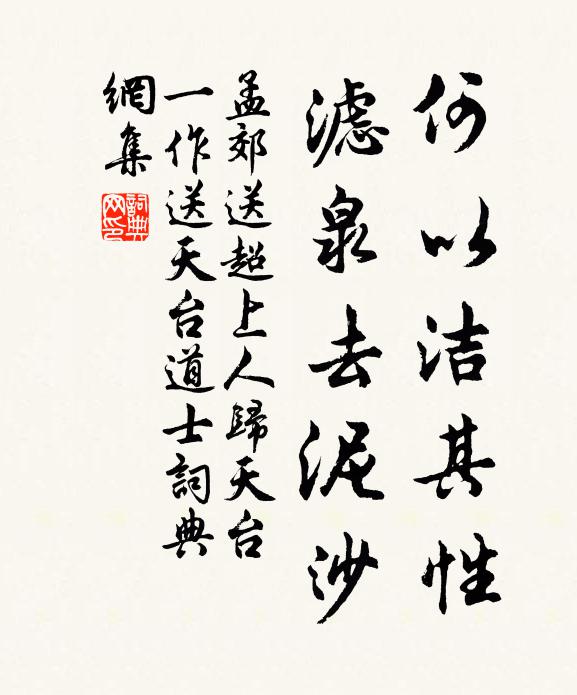 何以洁其性
滤泉去泥沙
孟郊送超上人歸天台
一作送天台道士詞典
網集
詞典
网印